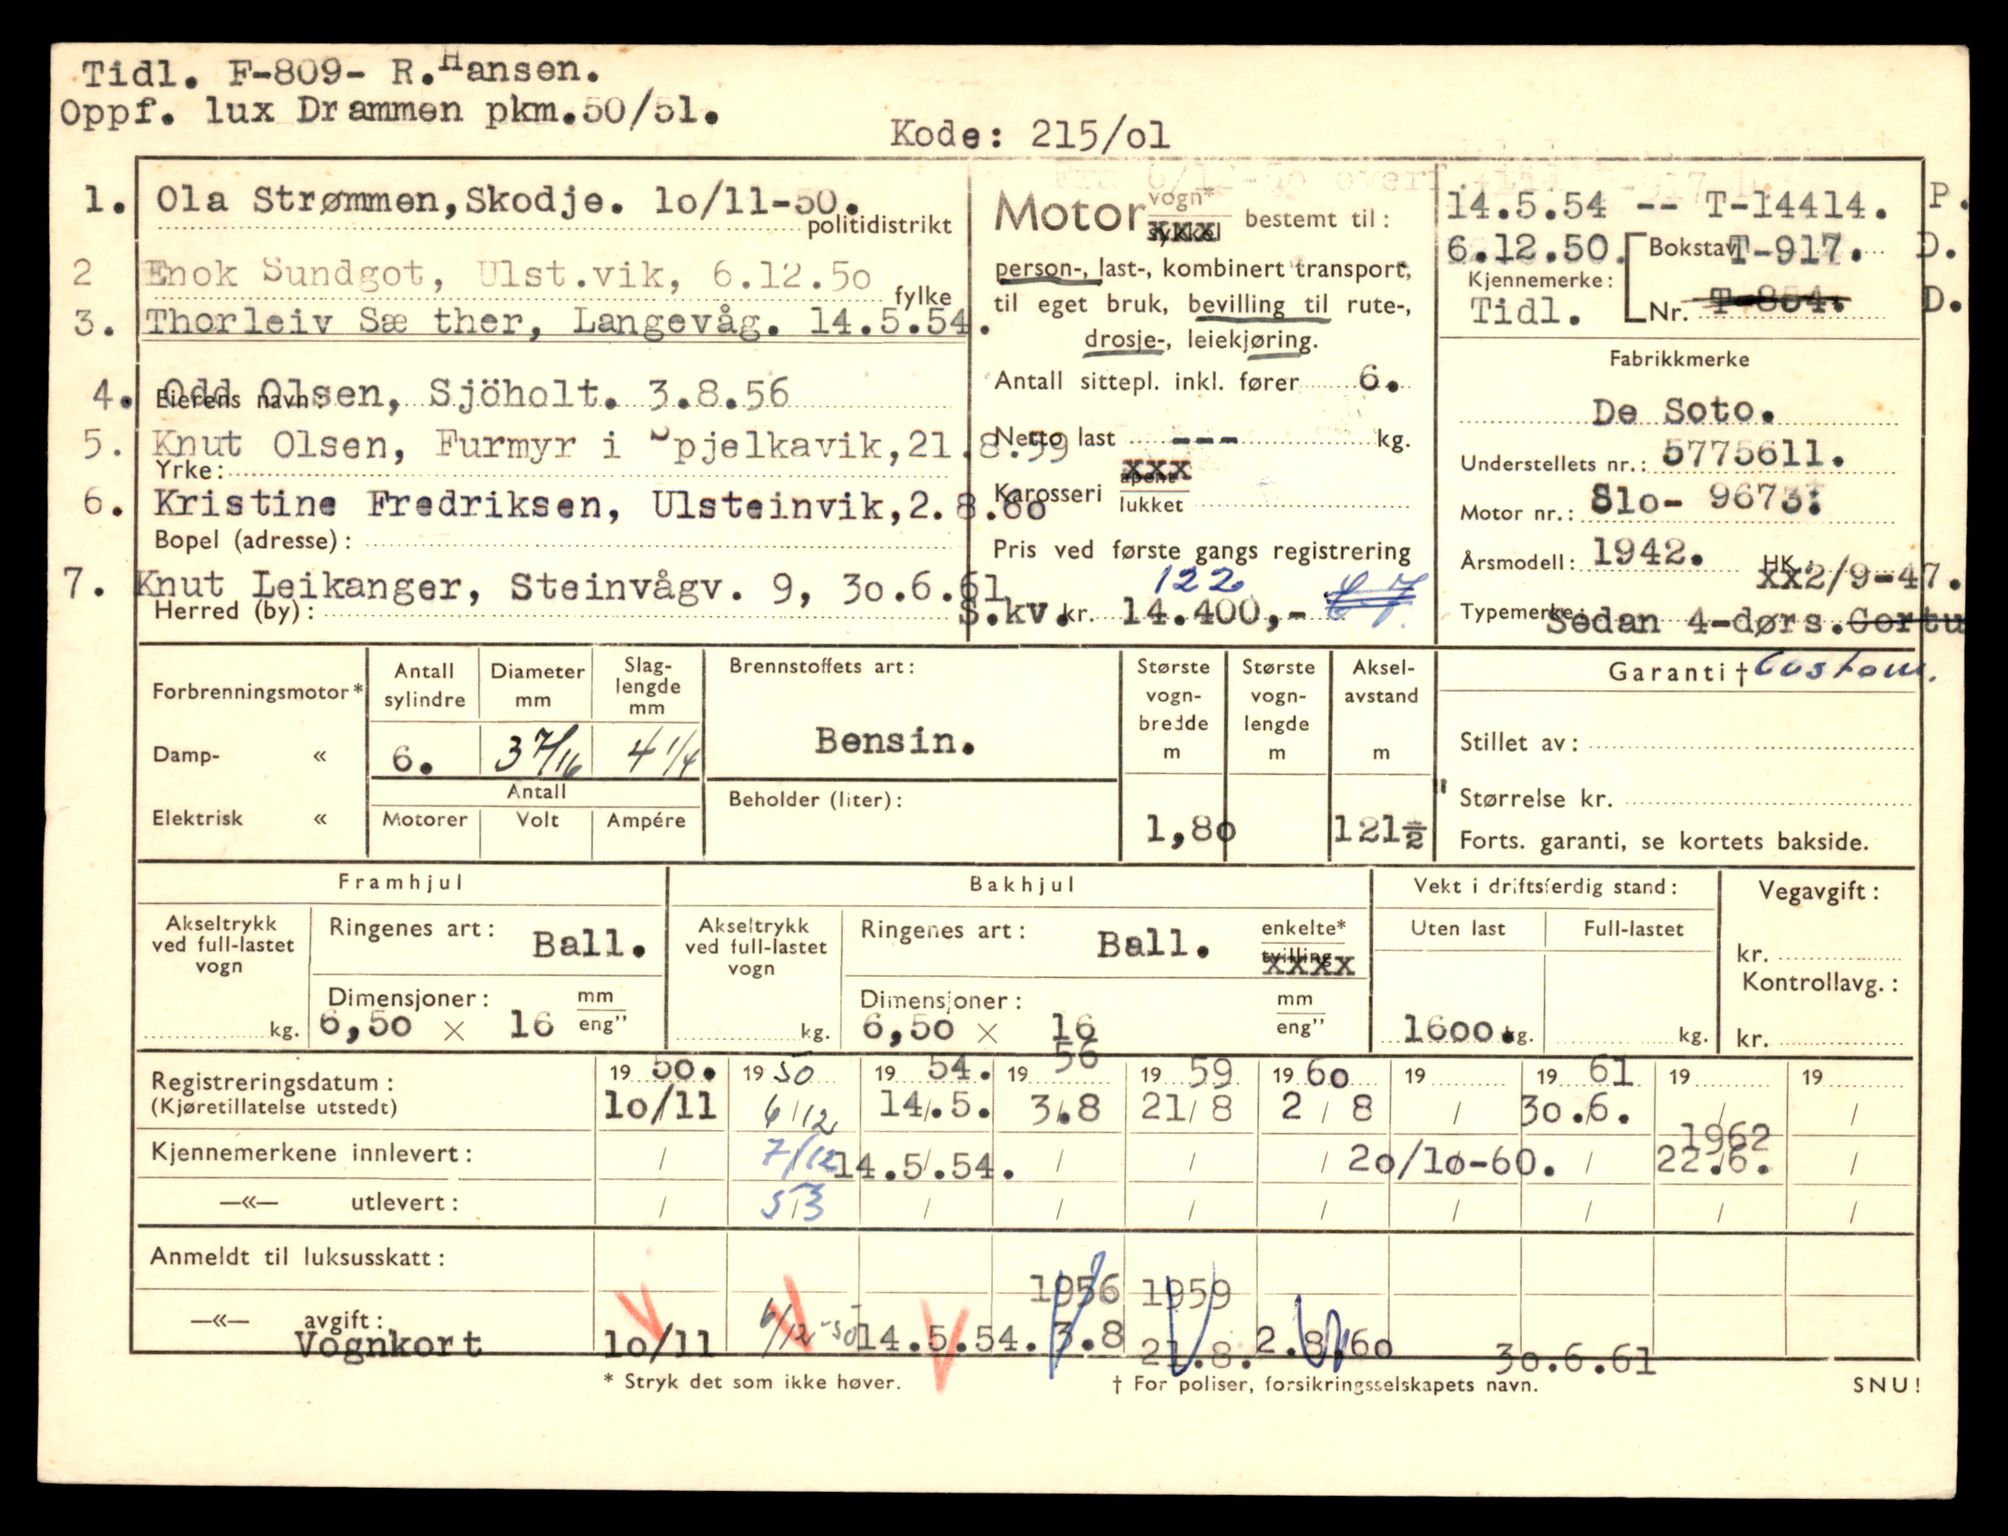 Tidl. F-809- R.Hansen.
Oppf. lux Drammen pkm.50/51.
Kode: 215/ol
1. Ola Strømmen,Skodje. lo/11-50.
politidistrikt
2 Enok Sundgot, Ulst.vik, 6.12.5o
fylke
3. Thorleiv Sæ ther, Langevåg. 14.5.54.
4. Odd Olsen, Sjöholt. 3.8.56
Eierens navn:
5. Knut Olsen, Furmyr i Spjelkavik,21.8.59
Yrke:
6. Kristine Fredriksen, Ulsteinvik,2.8.6o
Bopel (adresse):
7. Knut Leikanger, Steinvågv. 9, 3o.6.61
Herred (by):
Motor vogn* xxx bestemt til:
sykkel
person-, last-, kombinert transport,
til eget bruk, bevilling til rute-,
drosje-, leiekjøring.
Antall sittepl. inkl. fører 6.
Netto last --- kg.
xxx
Karosseri åpent
lukket
Pris ved første gangs registrering
122
S.kv. kr. 14.400,-
14.5.54 -- T-14414. P.
6.12.50. Bokstav T-917. D.
Kjennemerke:
Tidl. Nr. T-854. D.
Fabrikkmerke
De Soto.
Understellets nr.: 5775611.
Motor nr.: Slo- 9673:
Årsmodell: 1942. HK. xx2/9-47.
Typemerke: Sedan 4-dørs. Cortu
Garanti † Custom.
Stillet av:
" Størrelse kr.
Forts. garanti, se kortets bakside.
Forbrenningsmotor* Antall sylindre Diameter mm Slag-lengde mm
Damp- « 6. 3 7/16 4 1/4
Antall
Elektrisk « Motorer Volt Ampére
Brennstoffets art:
Bensin.
Beholder (liter):
Største vogn-bredde m Største vogn-lengde m Aksel-avstand m
1,80 121½
Framhjul Bakhjul Vekt i driftsferdig stand: Vegavgift:
Akseltrykk ved full-lastet vogn Ringenes art: Ball.
Dimensjoner: mm
kg. 6,50 × 16 eng"
Akseltrykk ved full-lastet vogn Ringenes art: Ball. enkelte*
tvilling xxxx
Dimensjoner: mm
kg. 6,50 × 16 eng"
Uten last Full-lastet
1600. kg. kg.
kr.
Kontrollavg.:
kr.
Registreringsdatum: 19 50. 19 50 19 54. 19 56 19 59 19 60 19 19 61 19 19
(Kjøretillatelse utstedt) lo/11 6/12 14/.5. 3/.8 21/8 2 / 8 / 3o./6. / /
1962
Kjennemerkene innlevert: / 7/12 14.5/.54. / / / 2o/1o-60. / 22./6. /
—«— utlevert: / 5/3 / / / / / / / /
Anmeldt til luksusskatt:
1956 1959
—«— avgift:
Vognkort lo/11 6/12-50 14.5.54. 3.8 21.8. 2.8.60 3o.6.61
* Stryk det som ikke høver. † For poliser, forsikringsselskapets navn. SNU!